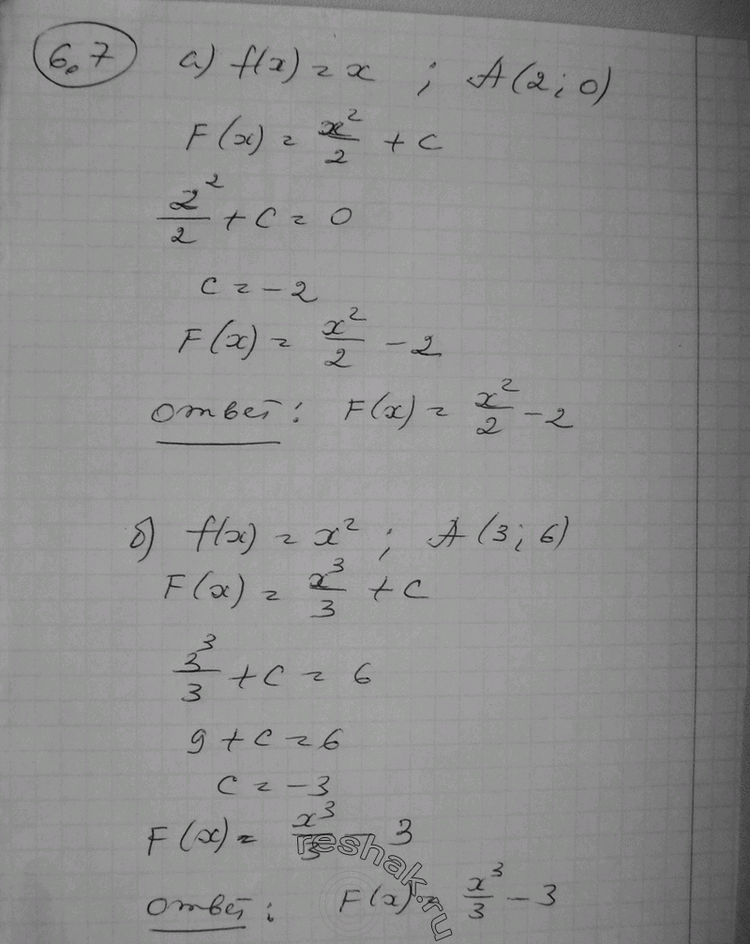 6.7 а) f(x) = x ; A(2; 0)
F(x) = x²/2 + C
2²/2 + C = 0
C = -2
F(x) = x²/2 - 2
Ответ: F(x) = x²/2 - 2
б) f(x) = x² ; A(3; 6)
F(x) = x³/3 + C
3³/3 + C = 6
9 + C = 6
C = -3
F(x) = x³/3 - 3
Ответ: F(x) = x³/3 - 3
reshak.ru